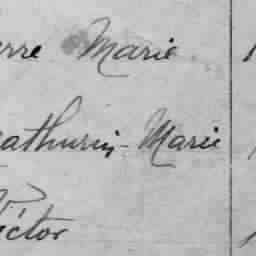 erre Marie
athurin-Marie
Victor